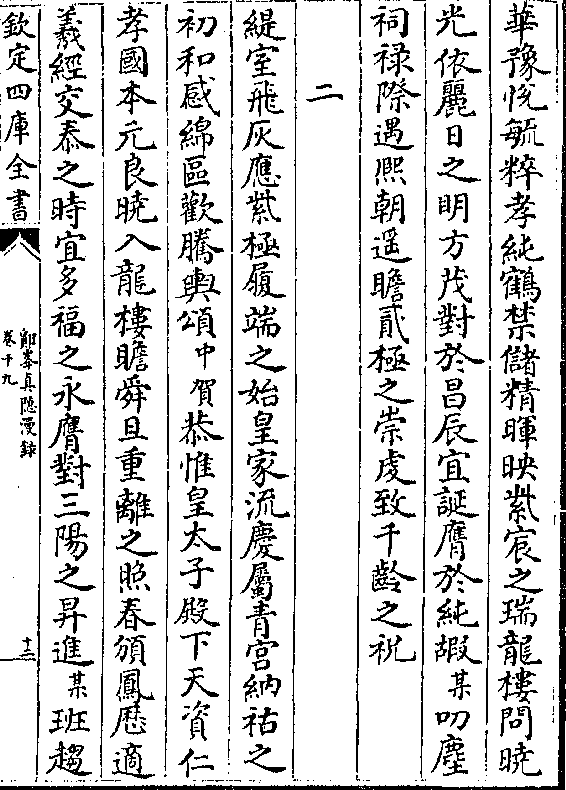 華豫悅毓粹孝純鶴禁儲精暉映紫宸之瑞龍樓問曉
光依麗日之明方茂對於昌辰宜誕膺於純嘏某叨塵
祠祿際遇熙朝遥瞻貳極之崇虔致千齡之祝
二
緹室飛灰應紫極履端之始皇家流慶屬青宮納祜之
初和感綿區歡騰輿頌中賀恭惟皇太子殿下天資仁
孝國本元良曉入龍樓瞻舜旦重離之照春頒鳳厯適
羲經交泰之時宜多福之永膺對三陽之昇進某班趨
欽定四庫全書
鄮峯真隱漫録
卷十九
十三